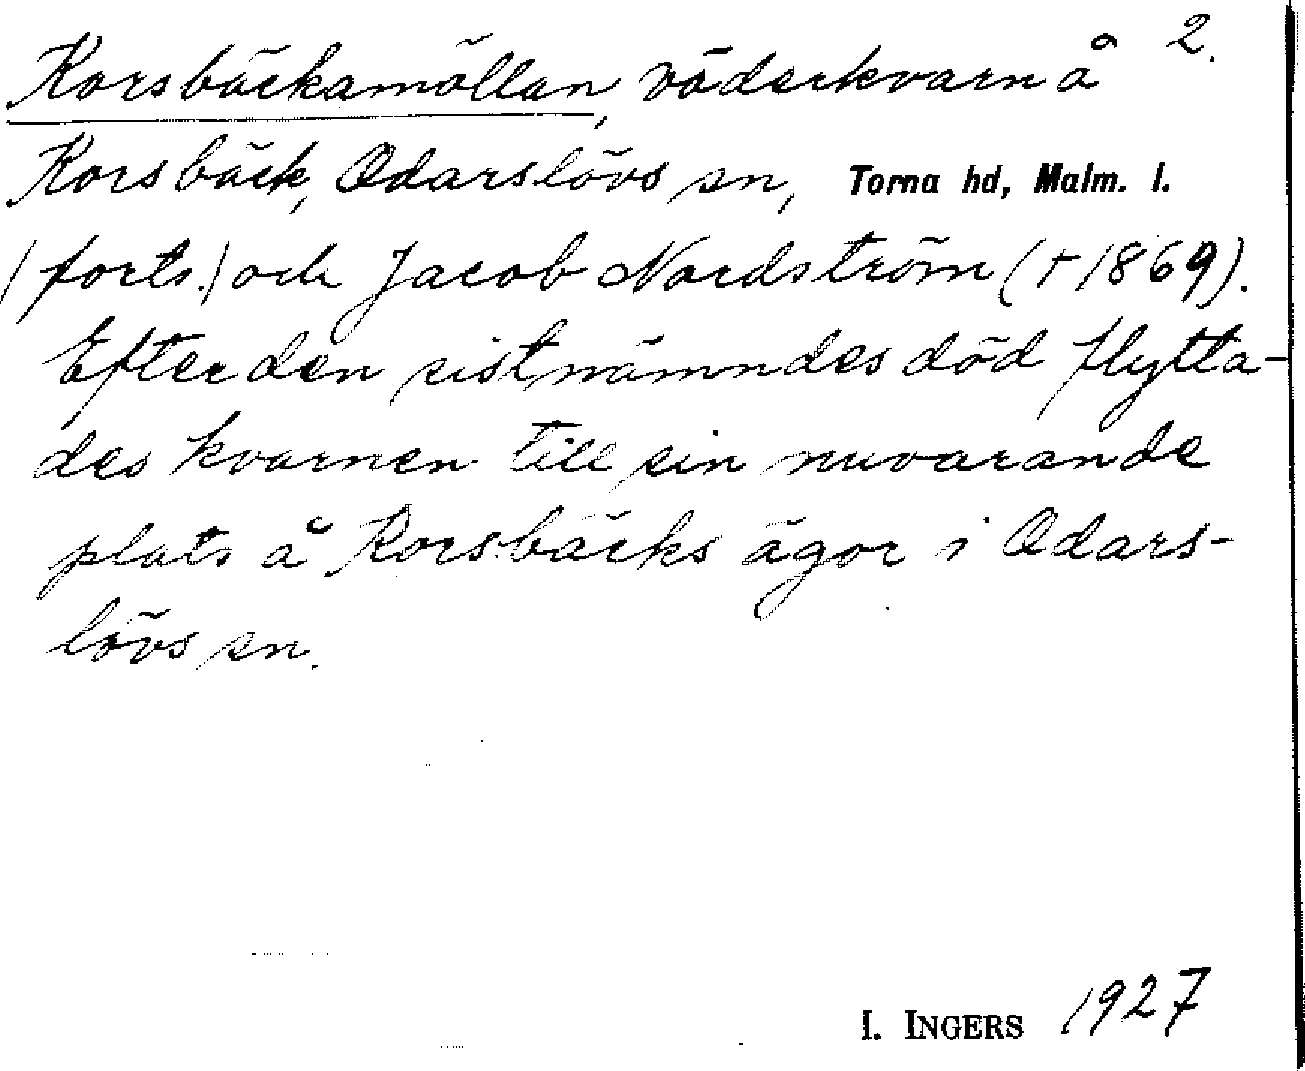 Korsbäckamöllan, väderkvarn å 2.
Korsbäck, Odarslövs sn, Torna hd, Malm. l.
(forts.) och Jacob Nordström († 1869).
Efter den sistnämndes död flytta-
des kvarnen till sin nuvarande
plats å Korsbäcks ägor i Odars-
lövs sn.
I. INGERS 1927